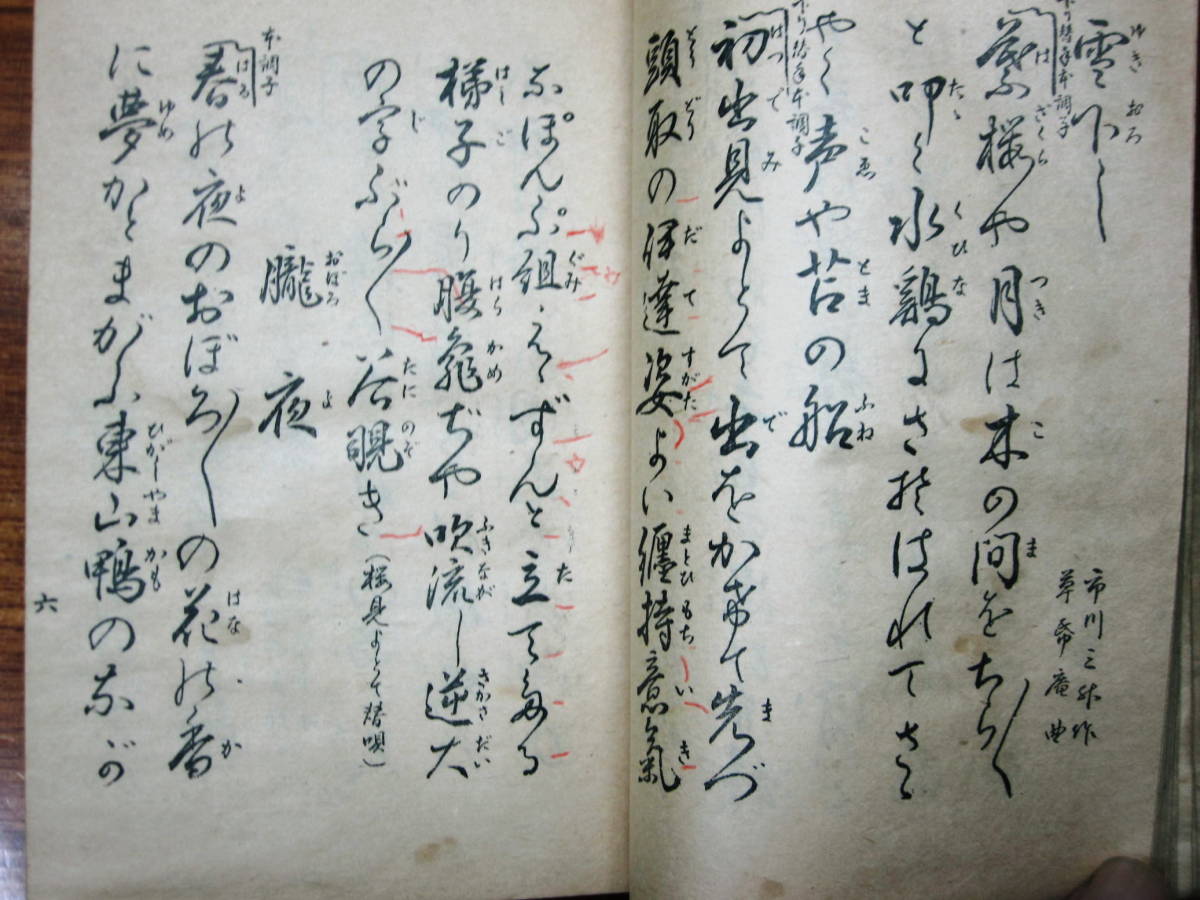 雪下し
市川三升作
草帋庵曲
下り替手本調子
葉桜や月は木の間をちら〳〵
と叩く水鶏にさそはれてさゝ
やく声や苫の船
下り替手本調子
初出見よとて出をかけて先づ
頭取の伊達姿よい纏持意氣
なぽんぷ組えゝずんと立てたる
梯子のり腹亀ぢや吹流し逆大
の字ぶら〳〵谷覗き（桜見よとて替唄）
朧夜
本調子
春の夜のおぼろ〳〵の花の香
に夢かとまがふ東山鴨のなが
六